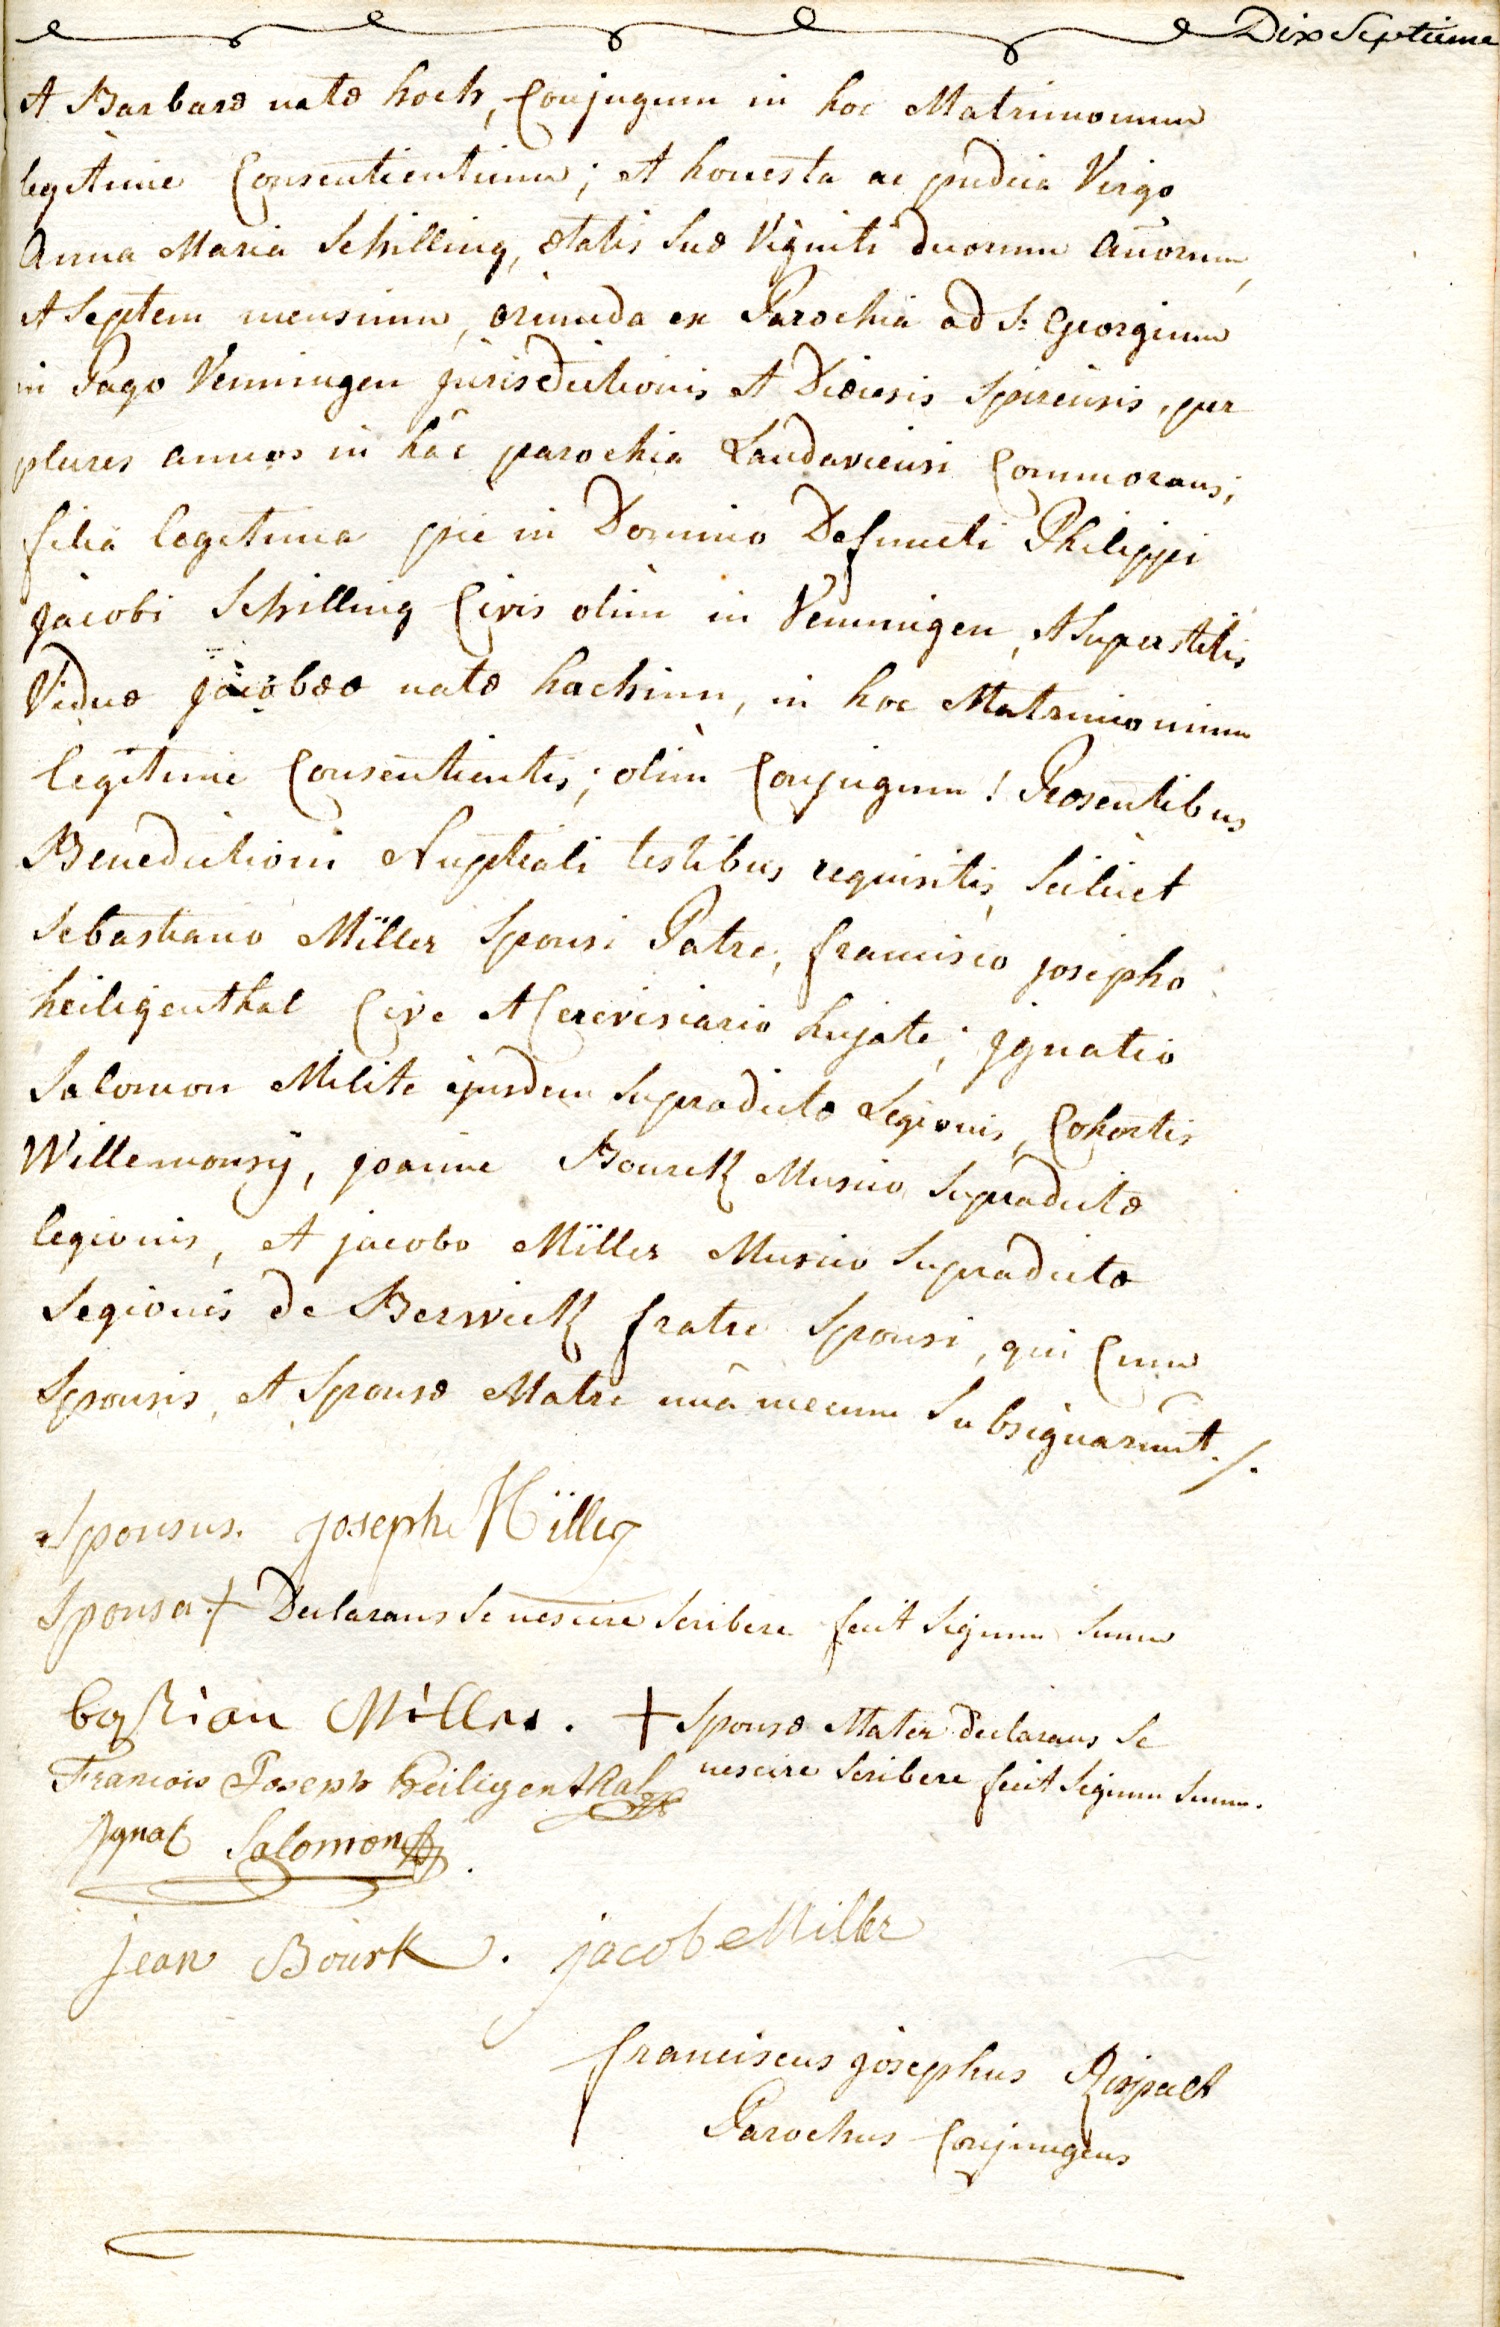 Dix Septieme
et Barbaræ natæ hoch, Conjugum in hoc Matrimonium
legitime Consentientium; et honesta ac pudica Virgo
Anna Maria Schilling, ætatis suæ Viginti duorum añorum,
et Septem mensium, oriunda ex Parochia ad S: Georgium
in Pago Venningen jurisdictionis et Diœcesis Spirensis, per
plures annos in hâc parochia Landaviensi Commorans;
filia legitima pie in Domino Defuncti Philippi
jacobi Schilling Civis olim in Venningen, et Superstitis
Viduæ jacobææ natæ hachinn, in hoc Matrimonium
legitime Consentientis; olim Conjugum! Præsentibus
Benedictioni Nuptiali testibus requisitis, Scilicet
Sebastiano Mïller Sponsi Patre, francisco josepho
heiligenthal Cive et Cerevisiario hujate; jgnatio
Salomon Milite ejusdem supradictæ Legionis, Cohortis
Willemonsÿ, joanne Bourck Musico supradictæ
legionis, et jacobo Mïller Musico Supradictæ
Legionis de Berwick fratre Sponsi, qui Cum
Sponsis, et Sponsæ Matre unâ mecum Subsignarunt ./.
Sponsus. joseph Mïller
Sponsa + Declarans se nescire scribere fecit Signum suum
bastian Miller. + Sponsæ Mater declarans se
nescire scribere fecit signum suum.
Francois Joseph Heiligenthal
Jgnat Salomon
jean Bourk. jacob Miller
franciscus josephus
Parochus Conjungens